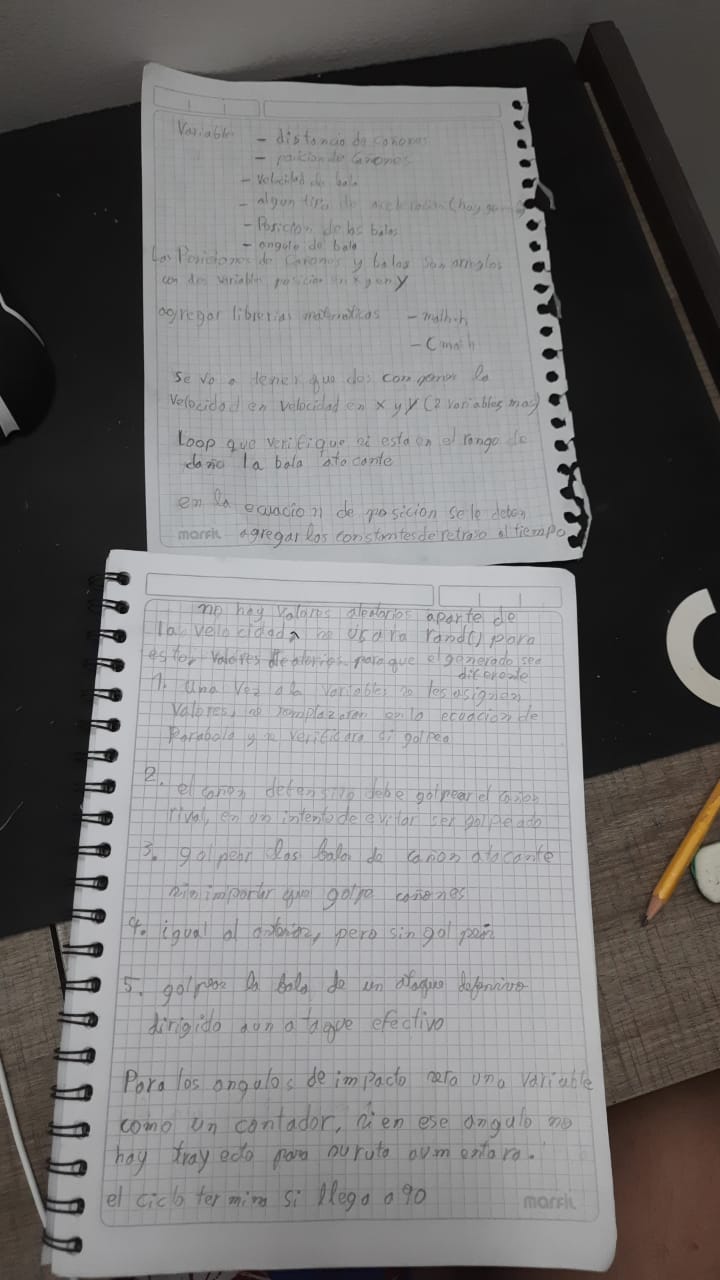 Variables - distancia de cañones
- posicion de cañones
- velocidad de bala
- algun tipo de aceleracion (hay
- Posicion de las balas
- angulo de bala
Las Posiciones de cañones y balas son arreglos
con dos variables posicion en x y en y
agregar librerias matematicas - math.h
- Cmath
se va a tener que des componer la
velocidad en velocidad en x y y (2 variables mas)
Loop que verifique si esta en el rango de
daño la bala atacante
en la ecuacion de posicion se le deben
agregar los constantes de retraso al tiempo
marfil
no hay valores aleatorios aparte de
la velocidad, se usara rand() para
estos valores aleatorios para que el generado sea
diferente
1. una vez a la variables se les asignen
valores, se remplazaran en la ecuacion de
Parabola y se verificara si golpea
2. el cañon defensivo debe golpear el cañon
rival, en un intento de evitar ser golpeado
3. golpear las balas de cañon atacante
sin importar que golpe cañones
4. igual al anterior, pero sin gol pear
5. golpear la bala de un ataque defensivo
dirigido a un ataque efectivo
Para los angulos de impacto sera una variable
como un contador, si en ese angulo no
hay trayecto para su ruta aumentara.
el ciclo termina si llego a 90
marfil